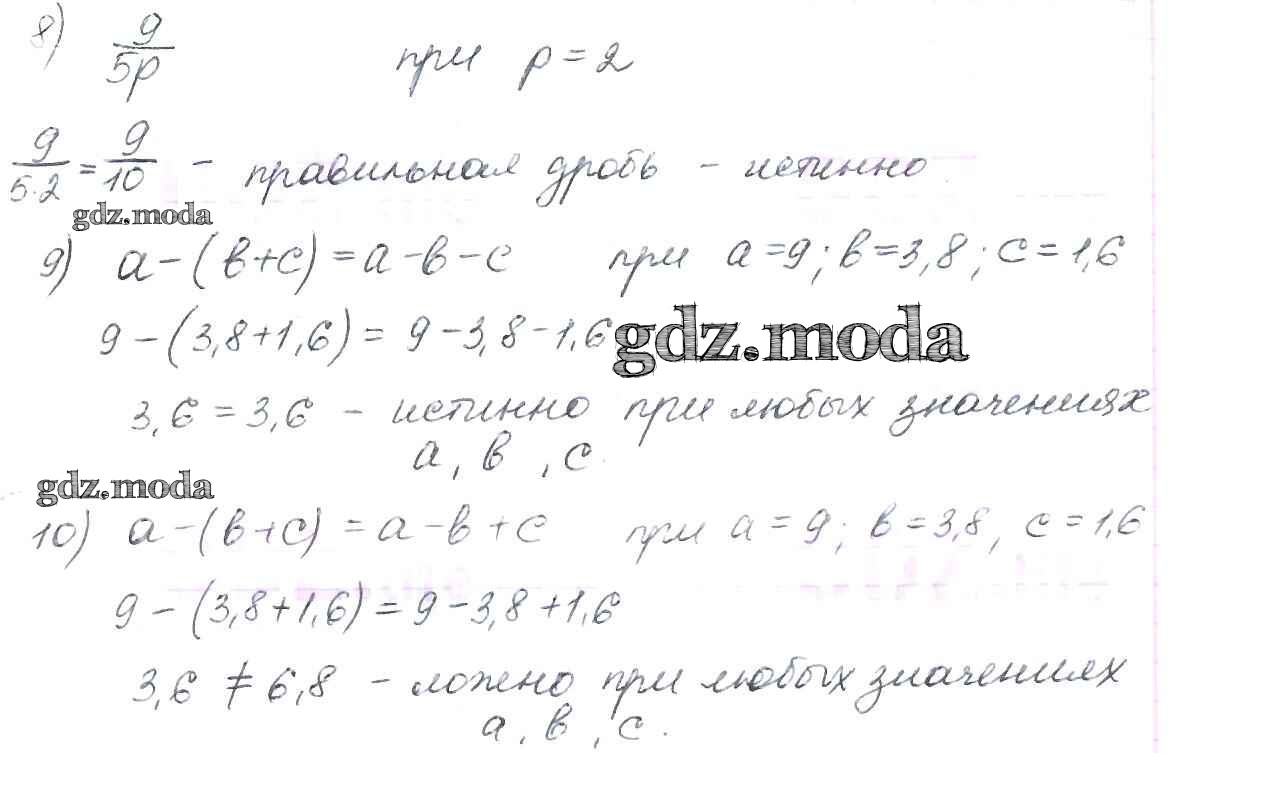 8) 9/5p при p = 2
9/5·2 = 9/10 - правильная дробь - истинно
gdz.moda
9) a - (в+c) = a - в - c при a = 9; в = 3,8; c = 1,6
9 - (3,8+1,6) = 9 - 3,8 - 1,6
gdz.moda
3,6 = 3,6 - истинно при любых значениях
a, в, c.
gdz.moda
10) a - (в+c) = a - в + c при a = 9; в = 3,8, c = 1,6
9 - (3,8+1,6) = 9 - 3,8 + 1,6
3,6 ≠ 6,8 - ложно при любых значениях
a, в, c.